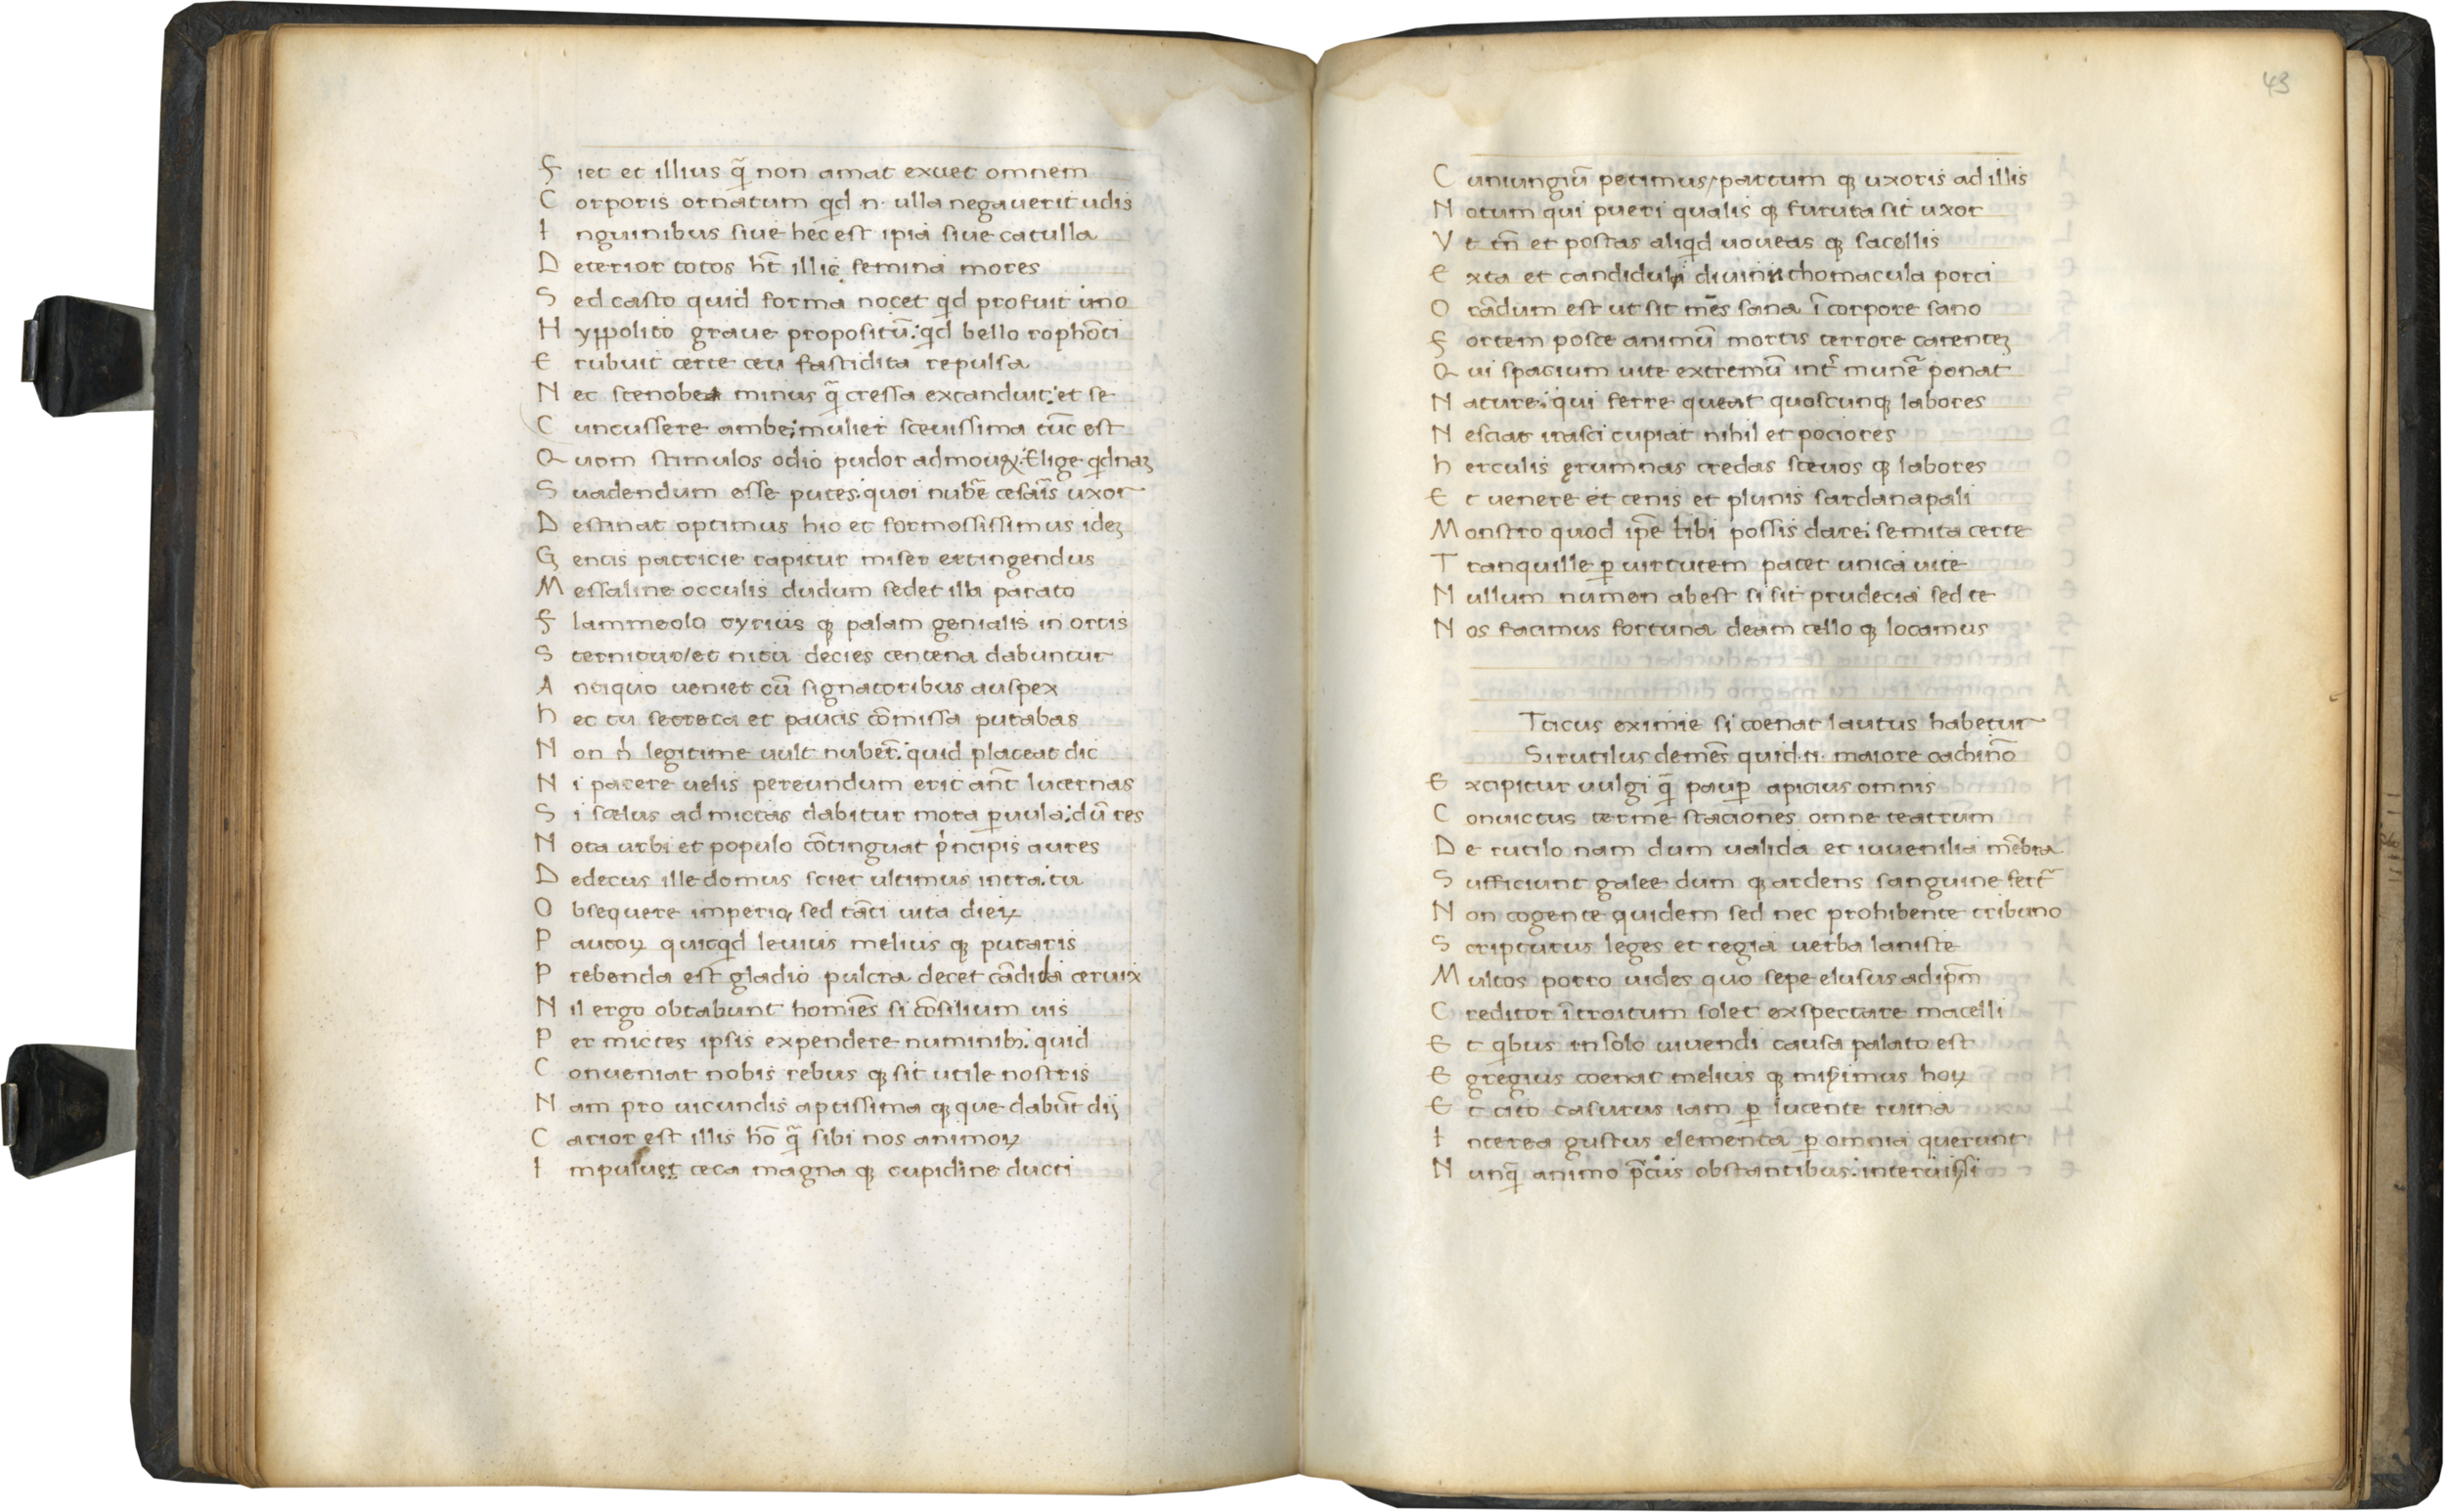 F iet et illius q̃ non amat exuet omnem
C orporis ornatum qd n· ulla negauerit udis
I nguinibus siue hec est ipia siue catulla
D eterior totos ht̄ illic femina mores
S ed casto quid forma nocet qd profuit imo
H yppolito graue propositū: qd bello rophōti
E rubuit certe ceu fastidita repulsa
N ec stenobea minus q̃ cressa excanduit: et se
C uncussere ambe; mulier sceuissima tūc est
Q uom stimulos odio pudor admouꝫ: Elige qdnaꝫ
S uadendum esse putes: quoi nubē cesaīs uxor
D estinat optimus hio et formossissimus ideꝫ
G entis patricie rapitur miser extingendus
M essaline occulis dudum sedet illa parato
F lammeolo tyrius qꝫ palam genialis in ortis
S ternitur/et ritu decies centena dabuntur
A ntiquo ueniet cū signatoribus auspex
h ec tu secreta et paucis cōmissa putabas
N on ṅ legitime uult nuber̄: quid placeat dic
N i parere uelis pereundum erit an̄t lucernas
S i scelus admictas dabitur mora ꝑuula: dū res
N ota urbi et populo cōtinguat p̍ncipis aures
D edecus ille domus sciet ultimus intra: tu
O bsequere imperio, sed tāti uita dieꝝ
P aucoꝝ quicqd leuius melius qꝫ putaris
P rebenda est gladio pulcra decet cādida ceruix
N il ergo obtabunt homīes si cōsilium uis
P er mictes ipsis expendere numinibꝫ: quid
C onueniat nobis rebus qꝫ sit utile nostris
N am pro uicundis aptissima qꝫ que dabūt dij
C arior est illis hō q̃ sibi nos animoꝝ
I mpuluet ceca magna qꝫ cupidine ducti
43
C uniungiū petimus/partum qꝫ uxoris ad illis
N otum qui pueri qualis qꝫ fururta sit uxor
V t tn̄ et postas aliqd uoueas qꝫ sacellis
E xta et candiduli diuini thomacula porci
O rādum est ut sit mēs sana ī corpore sano
F ortem posce animū mortis terrore carenteꝫ
Q ui spacium uite extremū int̍ munē ponat
N ature: qui ferre queat quoscunqꝫ labores
N esciat irasci cupiat nihil et pociores
h erculis ęrumnas credas sceuos qꝫ labores
E t uenere et cenis et plunis sardanapali
M onstro quod ip̄e tibi possis dare: semita certe
T ranquille ꝑ uirtutem patet unica uite
N ullum numen abest si sit prudecia sed te
N os facimus fortuna deam cello qꝫ locamus
Tacus eximie si coenat lautus habetur
Si rutilus demēs quid·n· maiore cachinō
E xcipitur uulgi q̃ pauꝑ apicius omnis
C onuictus terme staciones omne teatrum
D e rutilo nam dum ualida et iuuenilia mēbra
S ufficiunt galee dum qꝫ ardens sanguine fert̃
N on cogente quidem sed nec prohibente tribuno
S cripturus leges et regia uerba laniste
M ultos porro uides quo sepe elusus adip̄m
C reditor ītroitum solet exspectare macelli
E t qbus in solo uiuendi causa palato est
E gregius coenat melius qꝫ miserimus hoꝝ
E t cito casurus iam ꝑ lucente ruina
I nterea gustus elementa ꝑ omnia querunt
N unq̃ animo p̄ciis obstantibus: interius si